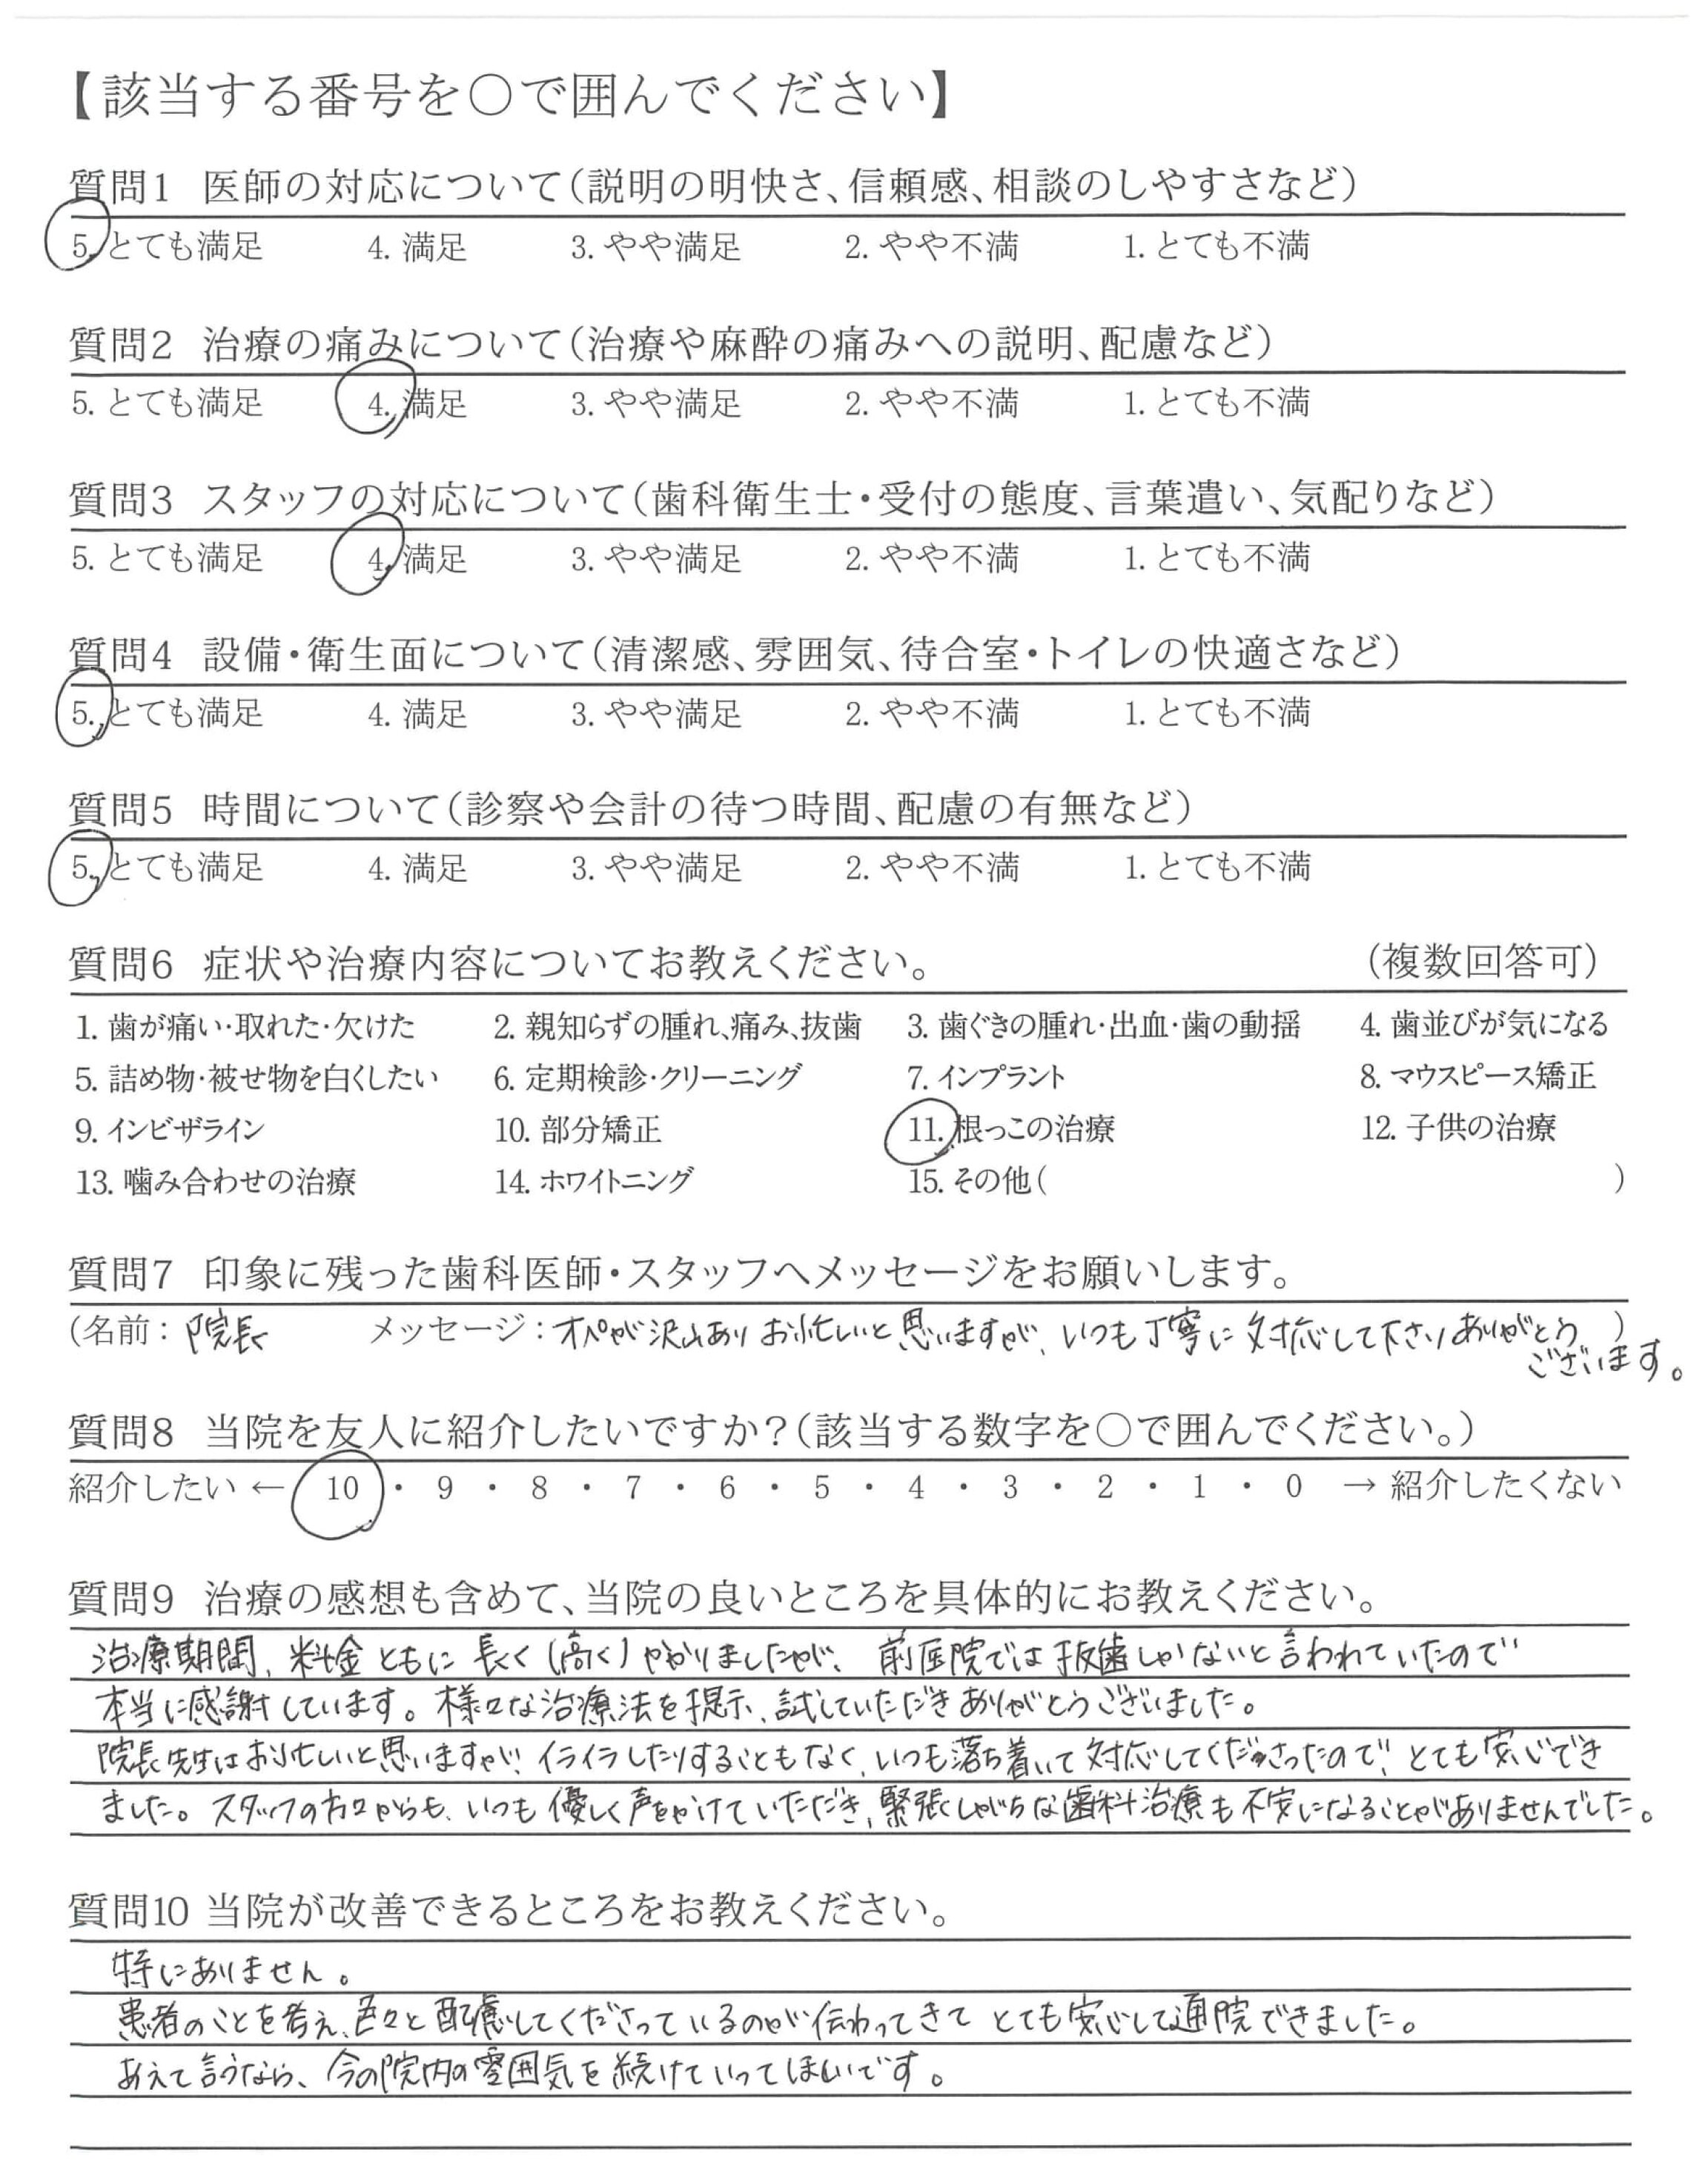 【該当する番号を○で囲んでください】
質問1 医師の対応について（説明の明快さ、信頼感、相談のしやすさなど）
5. とても満足 4. 満足 3. やや満足 2. やや不満 1. とても不満
質問2 治療の痛みについて（治療や麻酔の痛みへの説明、配慮など）
5. とても満足 4. 満足 3. やや満足 2. やや不満 1. とても不満
質問3 スタッフの対応について（歯科衛生士・受付の態度、言葉遣い、気配りなど）
5. とても満足 4. 満足 3. やや満足 2. やや不満 1. とても不満
質問4 設備・衛生面について（清潔感、雰囲気、待合室・トイレの快適さなど）
5. とても満足 4. 満足 3. やや満足 2. やや不満 1. とても不満
質問5 時間について（診察や会計の待つ時間、配慮の有無など）
5. とても満足 4. 満足 3. やや満足 2. やや不満 1. とても不満
質問6 症状や治療内容についてお教えください。 （複数回答可）
1. 歯が痛い・取れた・欠けた 2. 親知らずの腫れ、痛み、抜歯 3. 歯ぐきの腫れ・出血・歯の動揺 4. 歯並びが気になる
5. 詰め物・被せ物を白くしたい 6. 定期検診・クリーニング 7. インプラント 8. マウスピース矯正
9. インビザライン 10. 部分矯正 11. 根っこの治療 12. 子供の治療
13. 噛み合わせの治療 14. ホワイトニング 15. その他（ ）
質問7 印象に残った歯科医師・スタッフへメッセージをお願いします。
（名前：院長 メッセージ：オペが沢山ありお忙しいと思いますが、いつも丁寧に対応して下さりありがとう ）
ございます。
質問8 当院を友人に紹介したいですか？（該当する数字を○で囲んでください。）
紹介したい ← 10 ・ 9 ・ 8 ・ 7 ・ 6 ・ 5 ・ 4 ・ 3 ・ 2 ・ 1 ・ 0 → 紹介したくない
質問9 治療の感想も含めて、当院の良いところを具体的にお教えください。
治療期間、料金ともに長く（高く）かかりましたが、前医院では抜歯しかないと言われていたので
本当に感謝しています。様々な治療法を提示、試していただきありがとうございました。
院長先生はお忙しいと思いますが、イライラしたりすることもなく、いつも落ち着いて対応してくださったので、とても安心でき
ました。スタッフの方々からも、いつも優しく声をかけていただき、緊張しがちな歯科治療も不安になることがありませんでした。
質問10 当院が改善できるところをお教えください。
特にありません。
患者のことを考え、色々と配慮してくださっているのが伝わってきてとても安心して通院できました。
あえて言うなら、今の院内の雰囲気を続けていってほしいです。